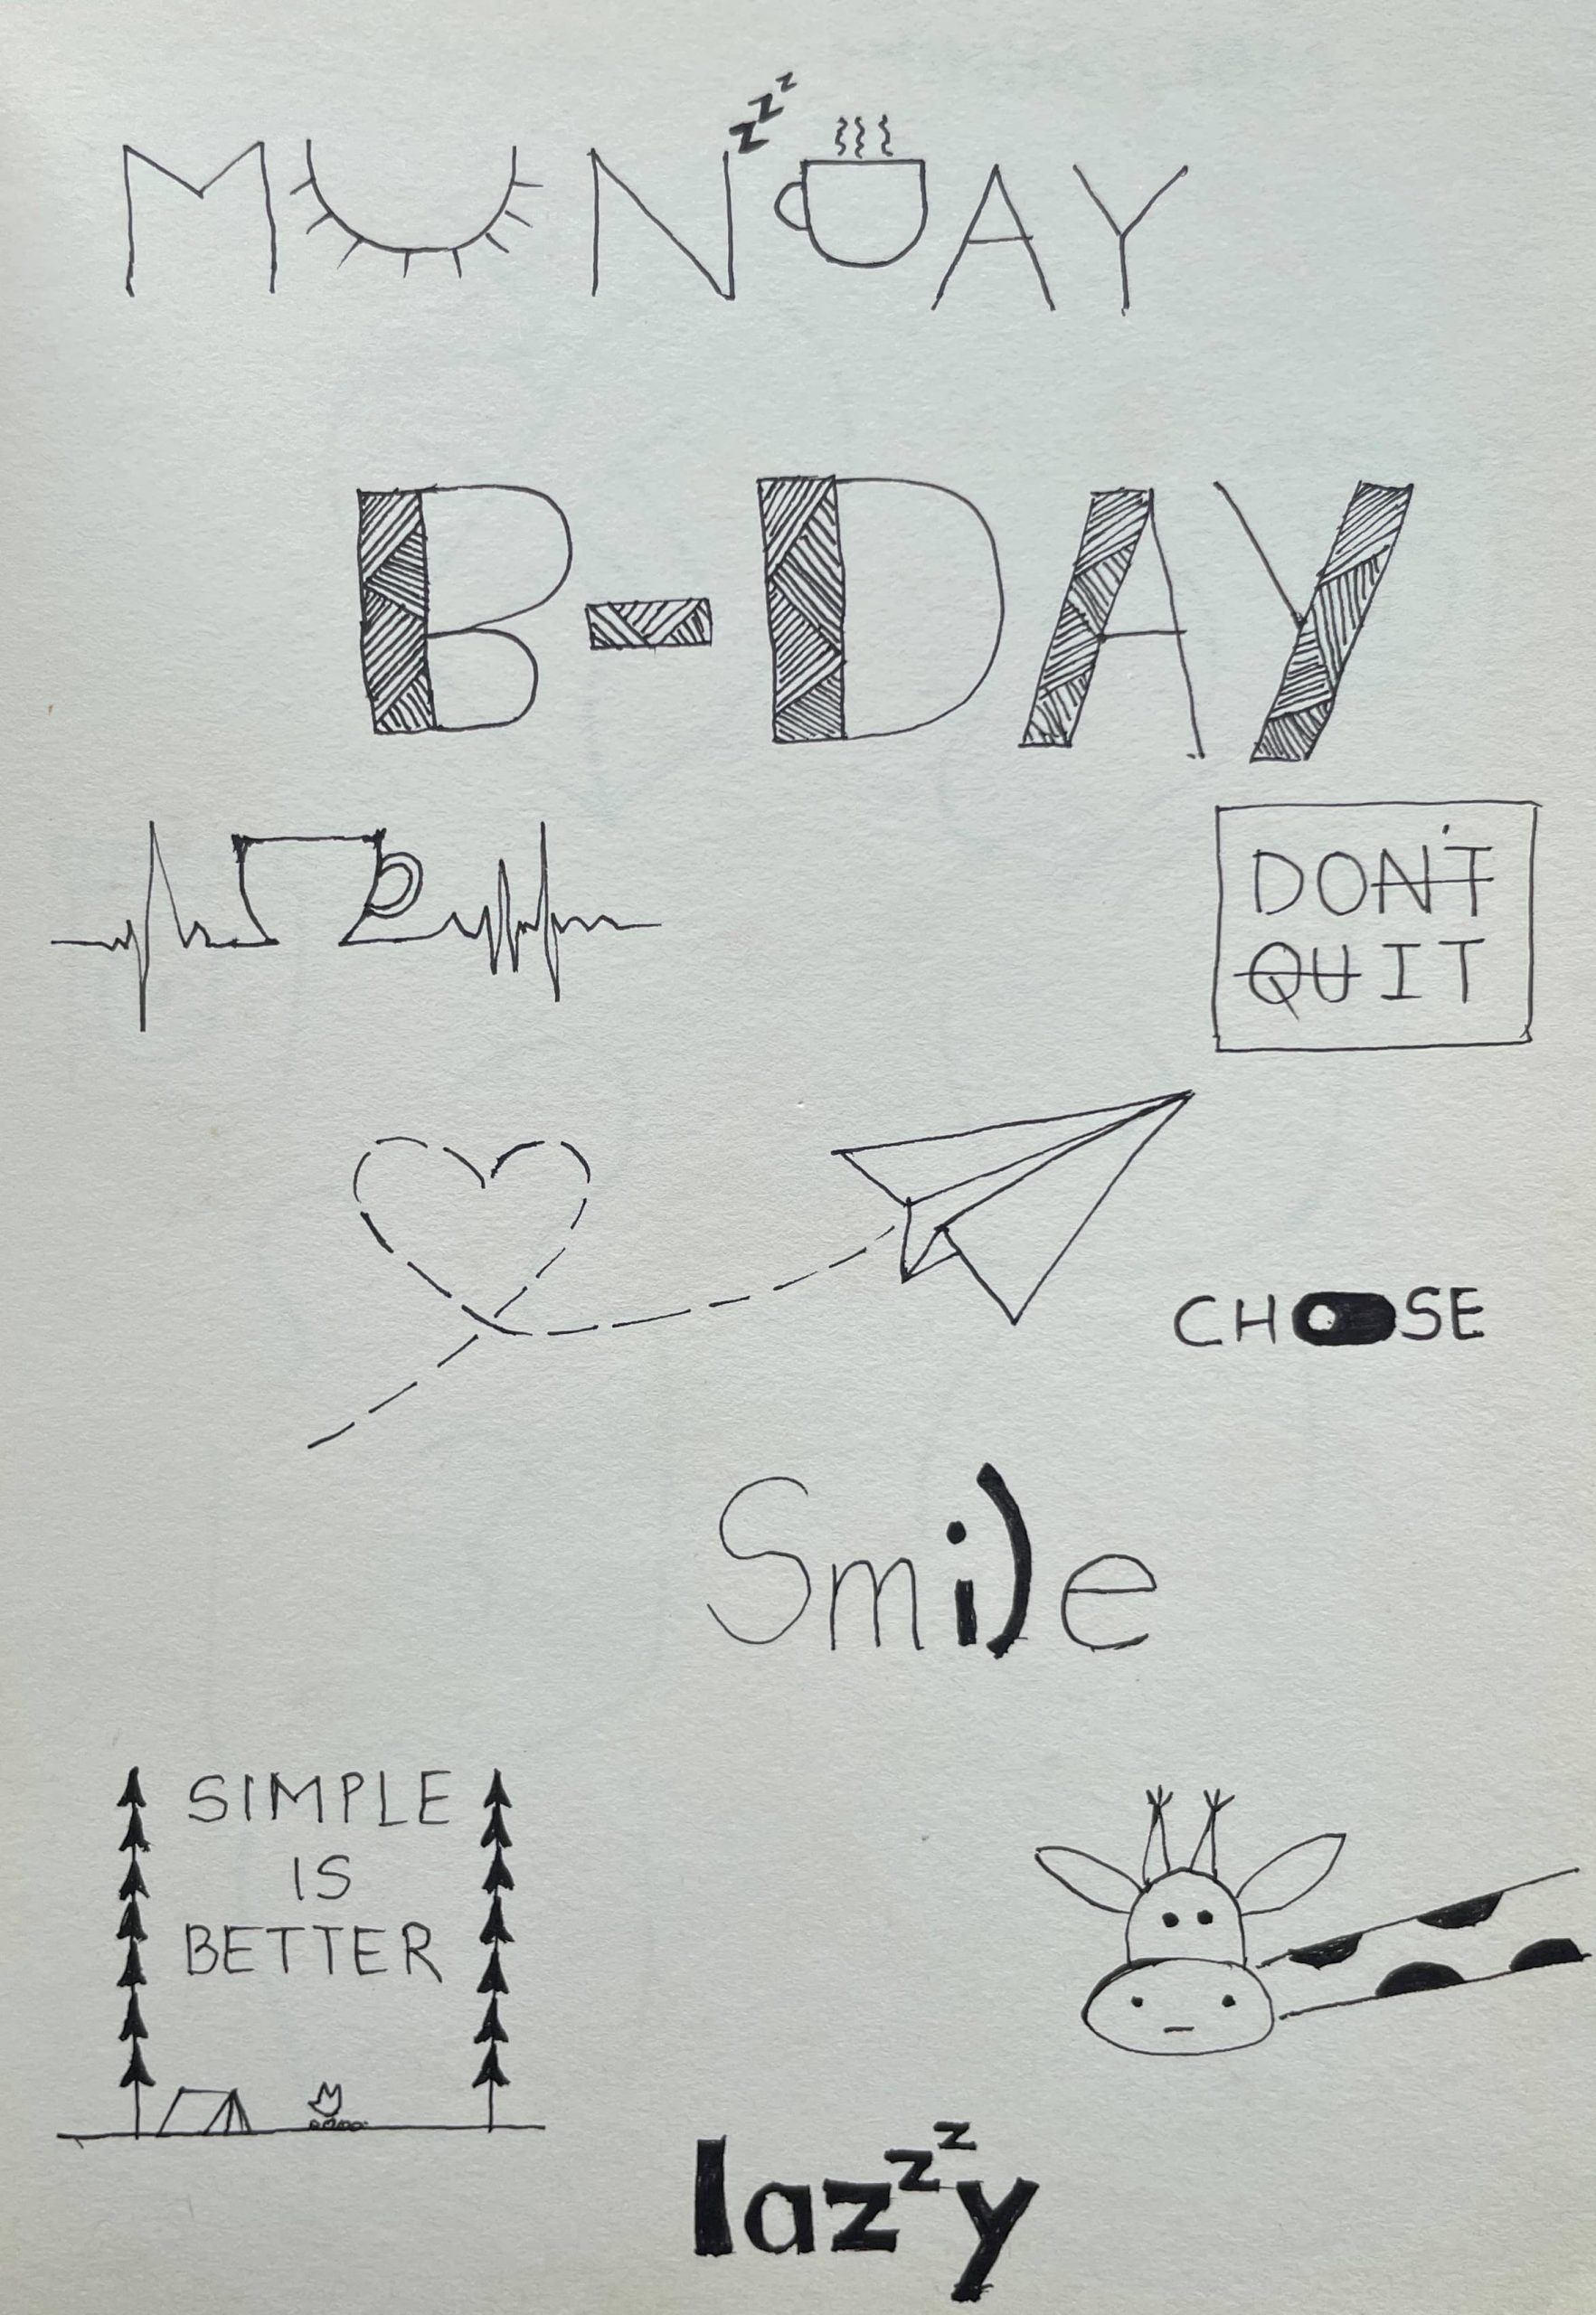 MONDAY
zzz
B-DAY
DON'T
QUIT
CHOOSE
Smile
SIMPLE
IS
BETTER
lazzzy